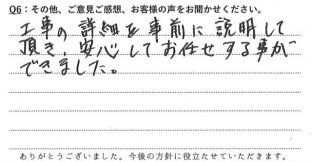 Q6：その他、ご意見ご感想、お客様の声をお聞かせください。
工事の詳細を事前に説明して
頂き、安心してお任せする事が
できました。
ありがとうございました。今後の方針に役立たせていただきます。